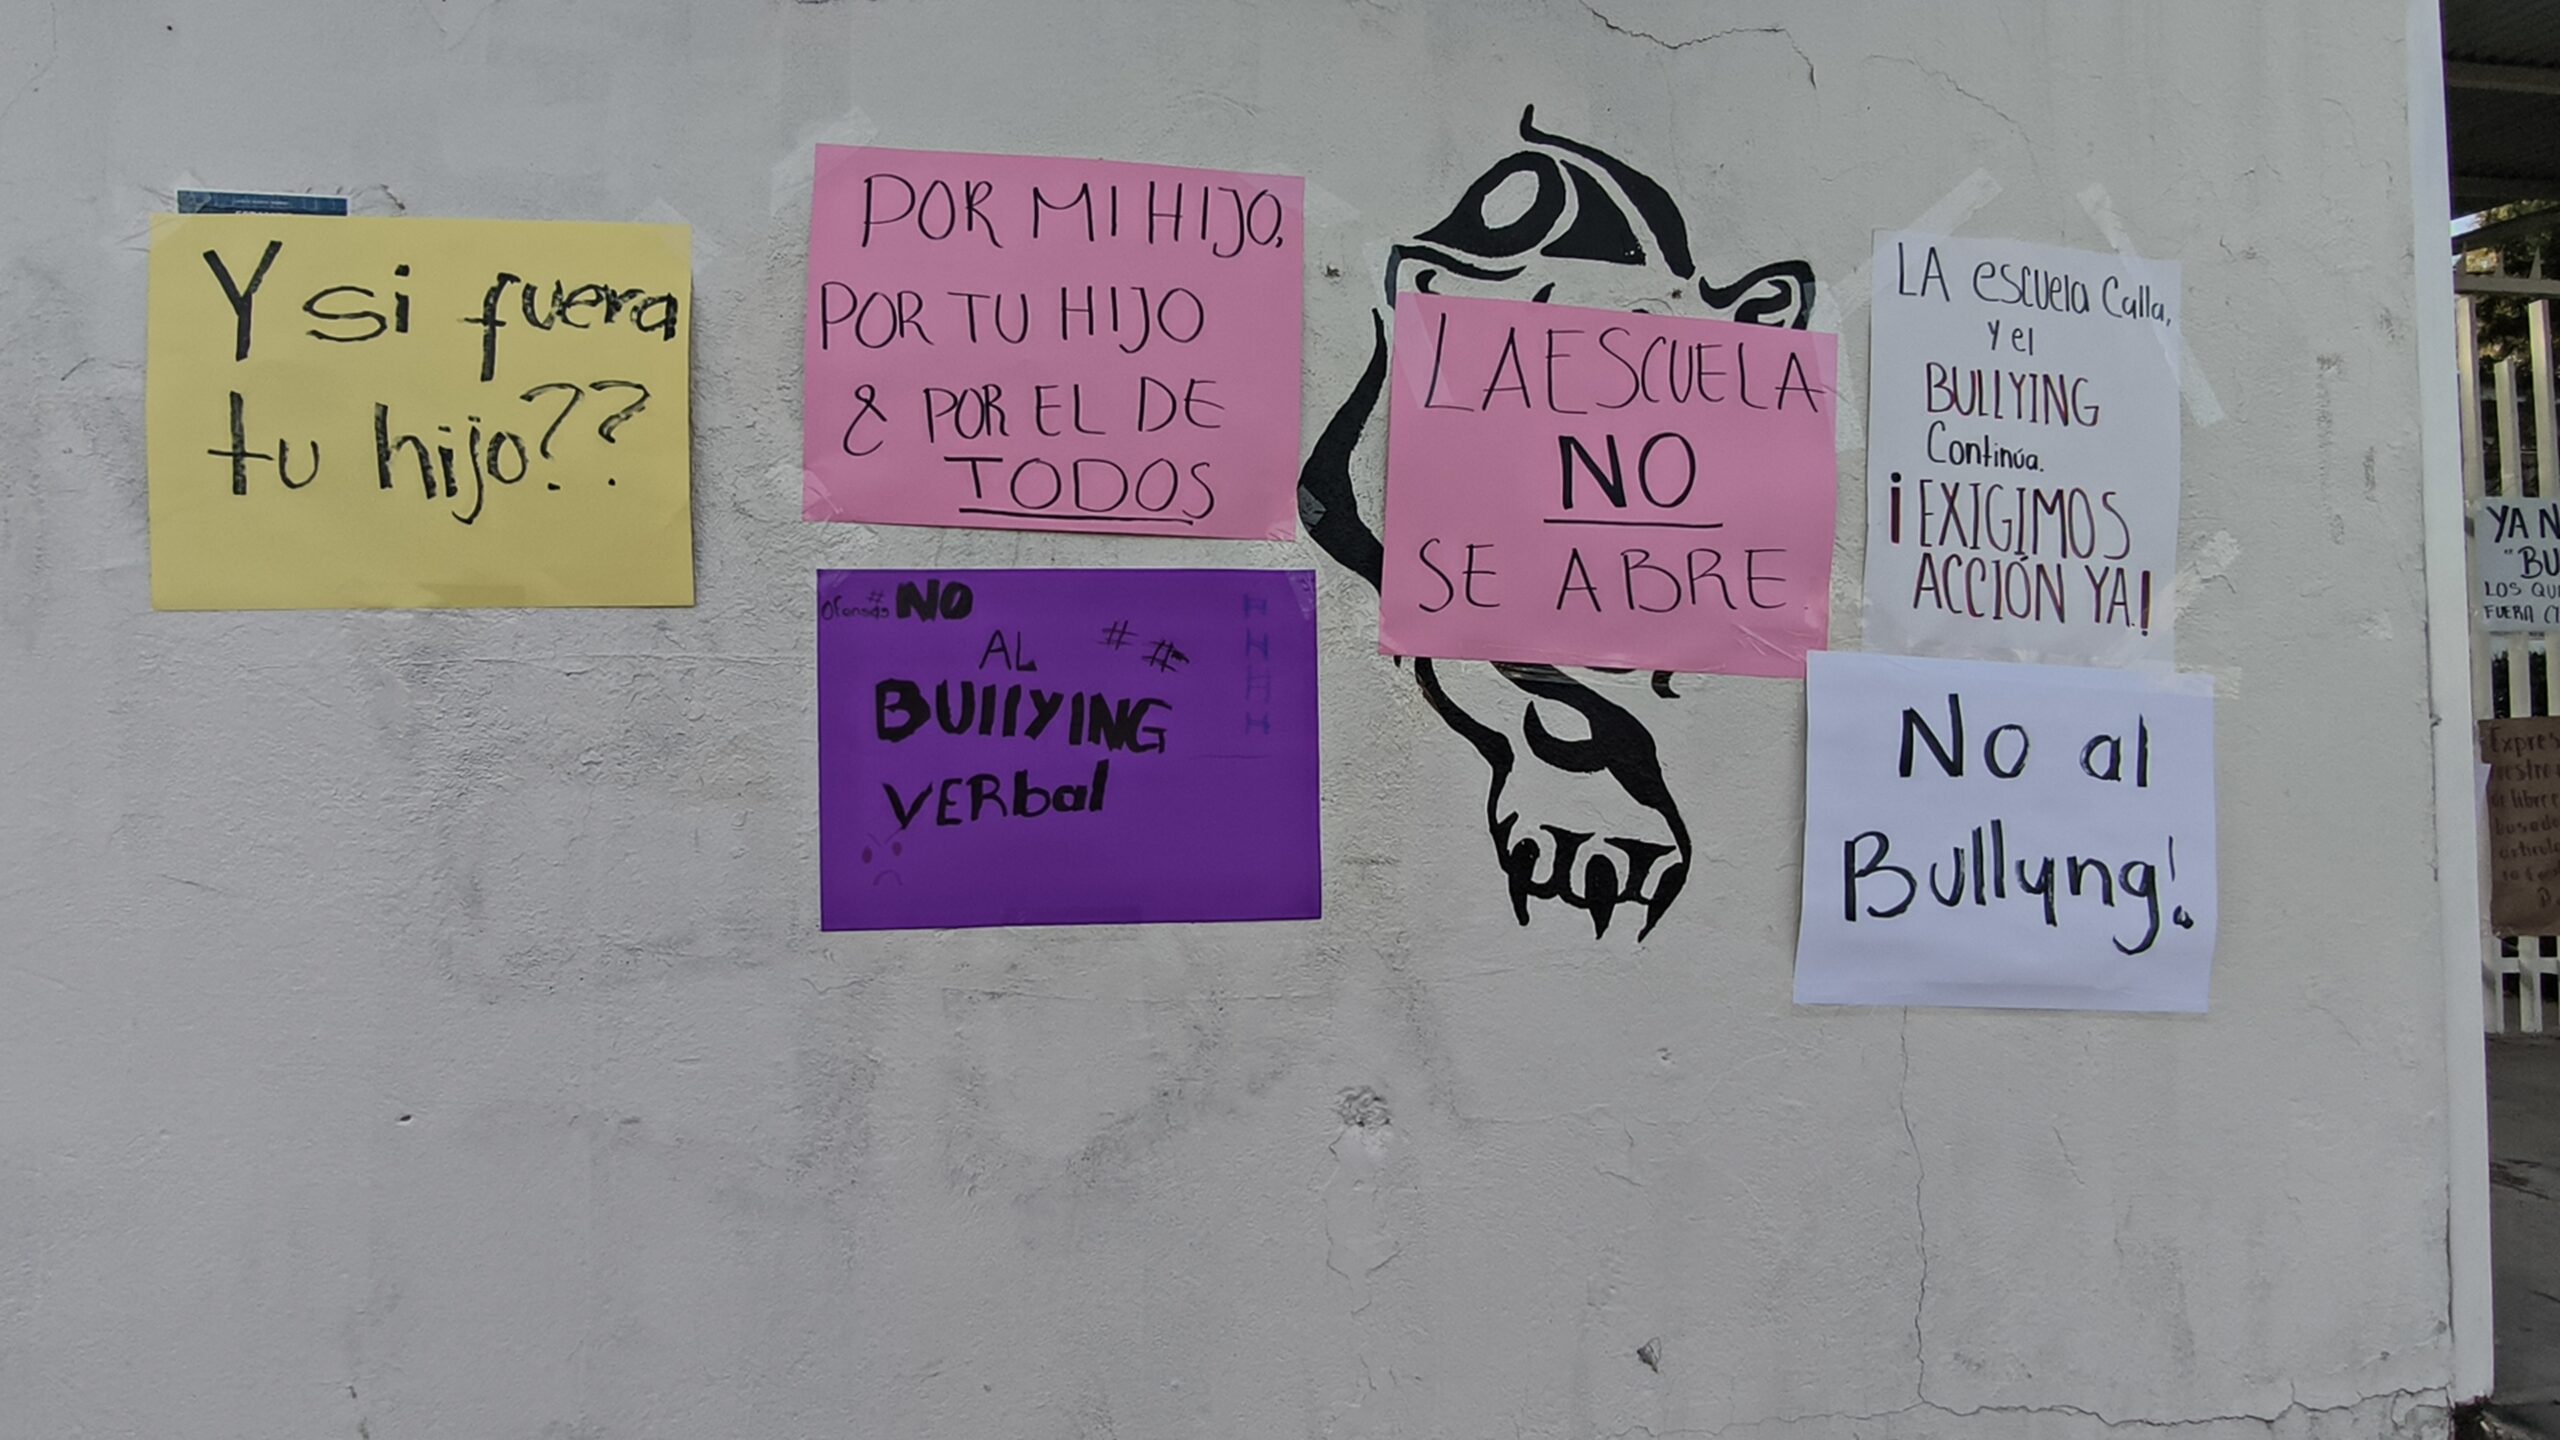 Y si fuera
tu hijo??
POR MI HIJO,
POR TU HIJO
& POR EL DE
TODOS
#
Ofensas NO
AL # #
BUllYING
VERbal
LA ESCUELA
NO
SE ABRE.
LA escuela Calla,
y el
BULLYING
Continúa.
¡EXIGIMOS
ACCIÓN YA!
No al
Bullyng!
YA N
"BU
LOS QU
FUERA
Expres